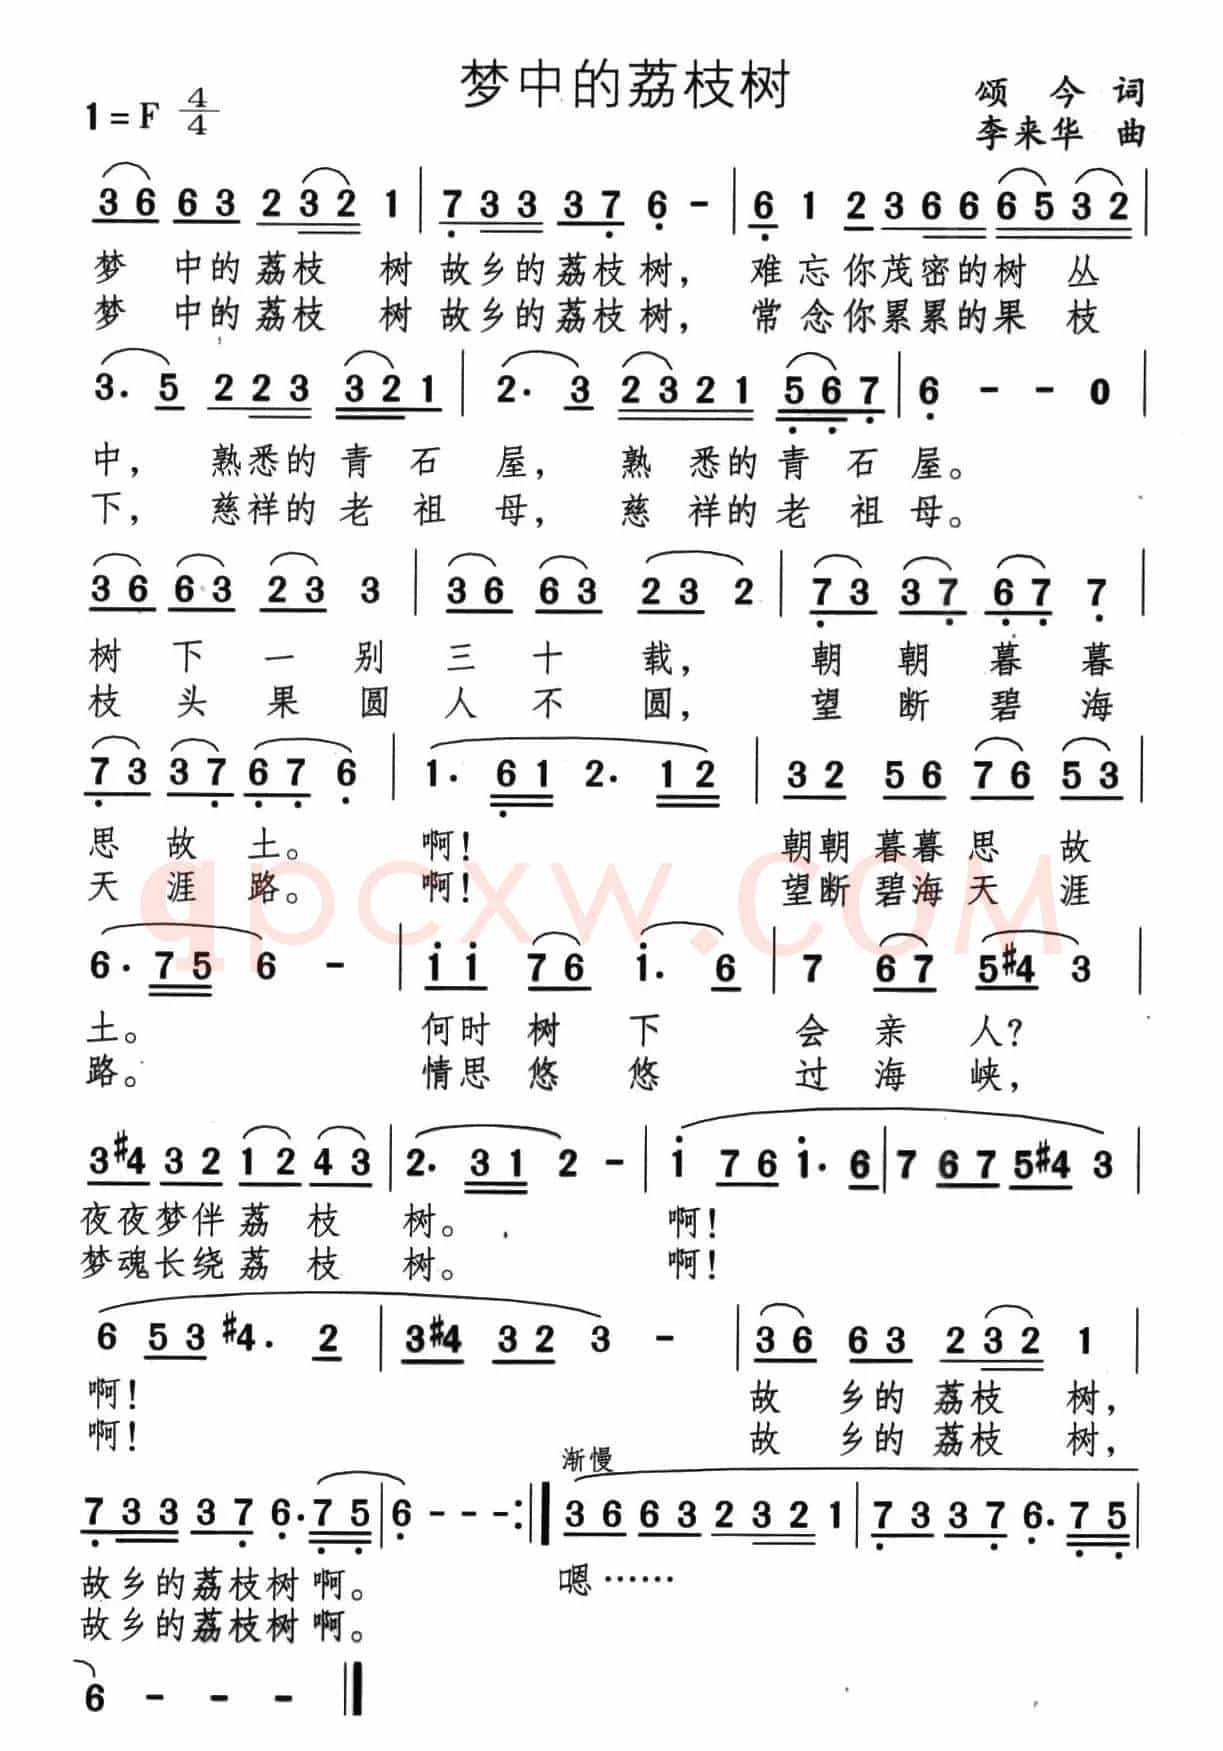 梦中的荔枝树
1=F 4/4
颂 今 词
李来华 曲
3 6 6 3 2 3 2 1 | 7 3 3 3 7 6 - | 6 1 2 3 6 6 6 5 3 2 |
梦 中的荔枝 树 故乡的荔枝树， 难忘你茂密的树 丛
梦 中的荔枝 树 故乡的荔枝树， 常念你累累的果 枝
3. 5 2 2 3 3 2 1 | 2. 3 2 3 2 1 5 6 7 | 6 - - 0 |
中， 熟悉的青 石 屋， 熟 悉的青 石 屋。
下， 慈祥的老 祖 母， 慈 祥的老 祖 母。
3 6 6 3 2 3 3 | 3 6 6 3 2 3 2 | 7 3 3 7 6 7 7 |
树 下 一 别 三 十 载， 朝 朝 暮 暮
枝 头 果 圆 人 不 圆， 望 断 碧 海
7 3 3 7 6 7 6 | 1. 6 1 2. 1 2 | 3 2 5 6 7 6 5 3 |
思 故 土。 啊！ 朝朝 暮暮 思 故
天 涯 路。 啊！ 望断 碧海 天 涯
qpcxw.COM
6. 7 5 6 - | i i 7 6 i. 6 | 7 6 7 5 #4 3 |
土。 何时 树 下 会 亲 人？
路。 情思 悠 悠 过 海 峡，
3 #4 3 2 1 2 4 3 | 2. 3 1 2 - | i 7 6 i. 6 | 7 6 7 5 #4 3 |
夜夜梦伴 荔 枝 树。 啊！
梦魂长绕 荔 枝 树。 啊！
6 5 3 #4. 2 | 3 #4 3 2 3 - | 3 6 6 3 2 3 2 1 |
啊！ 故 乡的 荔枝 树，
啊！ 故 乡的 荔枝 树，
渐慢
7 3 3 3 7 6. 7 5 | 6 - - - :| 3 6 6 3 2 3 2 1 | 7 3 3 7 6. 7 5 |
故乡的荔枝树 啊。 嗯……
故乡的荔枝树 啊。
6 - - - ‖